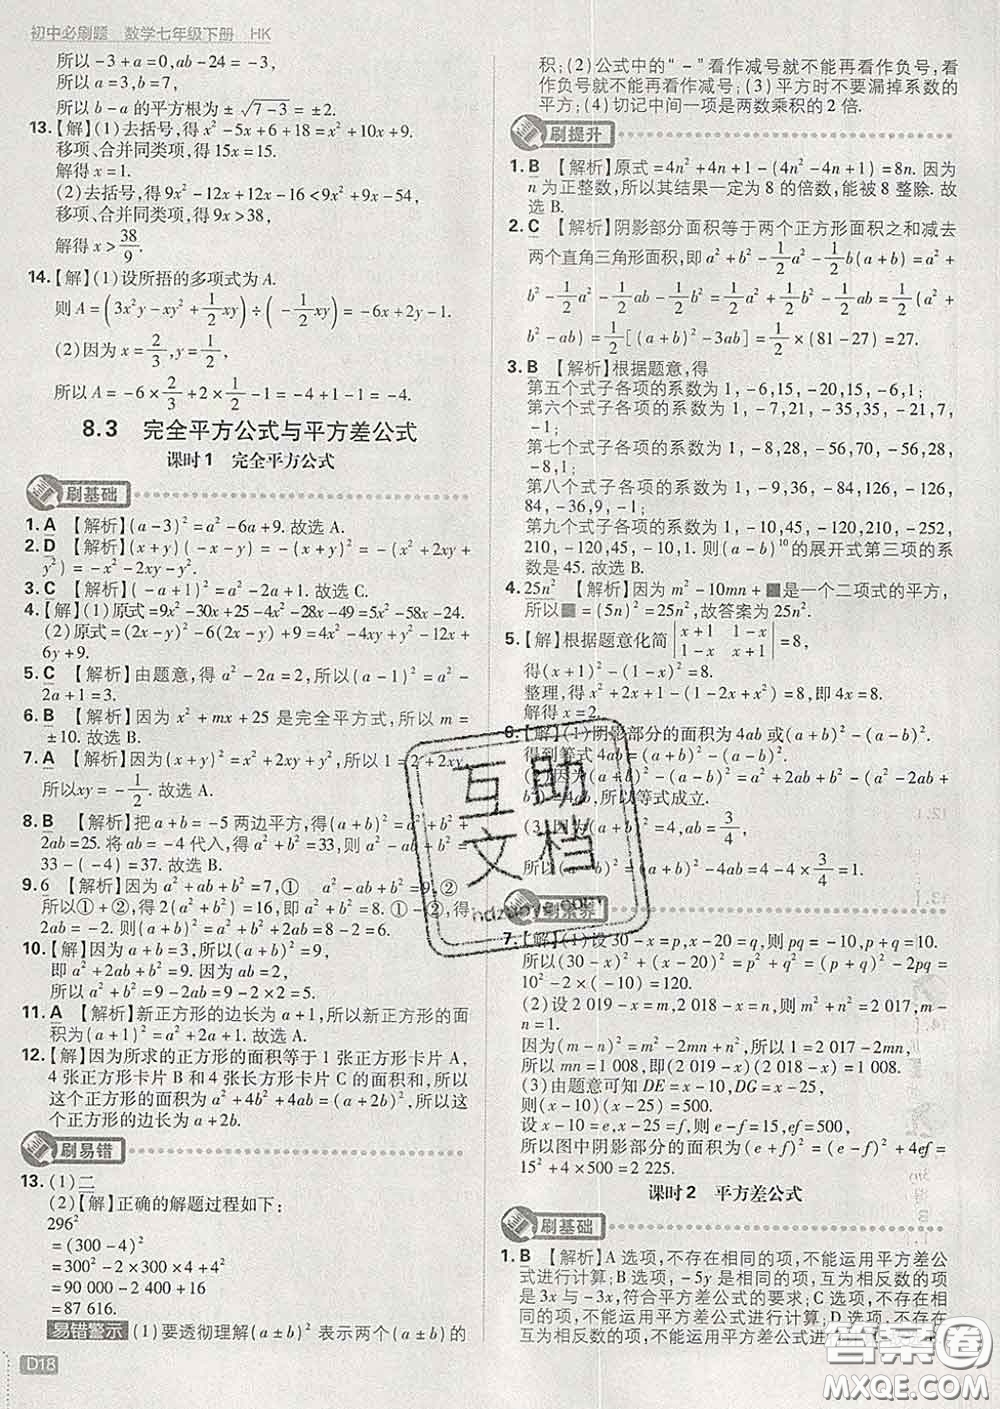 初中必刷题 数学七年级下册 HK
所以-3+a=0,ab-24=-3,
所以a=3,b=7,
所以b-a的平方根为±√(7-3)=±2.
13.【解】(1)去括号,得x²-5x+6+18=x²+10x+9.
移项、合并同类项,得15x=15.
解得x=1.
(2)去括号,得9x²-12x+12x-16<9x²+9x-54,
移项、合并同类项,得9x>38,
解得x>38/9.
14.【解】(1)设所捂的多项式为A.
则A=(3x²y-xy²+1/2xy)÷(-1/2xy)=-6x+2y-1.
(2)因为x=2/3,y=1/2,
所以A=-6×2/3+2×1/2-1=-4+1-1=-4.
8.3 完全平方公式与平方差公式
课时1 完全平方公式
刷基础
1.A 【解析】(a-3)²=a²-6a+9.故选A.
2.D 【解析】(x+y)(-x-y)=-(x+y)²=-(x²+2xy+
y²)=-x²-2xy-y².故选D.
3.C 【解析】(-a+1)²=a²-2a+1.故选C.
4.【解】(1)原式=9x²-30x+25-4x²-28x-49=5x²-58x-24.
(2)原式=(2x-y)²-6(2x-y)+9=4x²-4xy+y²-12x+
6y+9.
5.C 【解析】由题意,得a²-2a=0,所以(a-1)²=a²-
2a+1=1.故选C.
6.B 【解析】因为x²+mx+25是完全平方式,所以m=
±10.故选B.
7.A 【解析】因为(x+y)²=x²+2xy+y²,所以1=2+2xy,
所以xy=-1/2.故选A.
8.B 【解析】把a+b=-5两边平方,得(a+b)²=a²+b²+
2ab=25.将ab=-4代入,得a²+b²=33,则(a-b)²=
33-(-4)=37.故选B.
9.6 【解析】因为a²+ab+b²=7,① a²-ab+b²=9,②
所以①+②,得2(a²+b²)=16,即a²+b²=8.①-②,得
2ab=-2.则(a+b)²=a²+b²+2ab=8-2=6.
10.【解】因为a+b=3,所以(a+b)²=9,
即a²+2ab+b²=9.因为ab=-12,
所以a²-ab+b²=a²+2ab+b²-3ab=9-3×(-12)=45.
11.A 【解析】新正方形的边长为a+1,所以新正方形的
面积为(a+1)²=a²+2a+1.故选A.
12.【解】因为所求的正方形的面积等于1张正方形卡片A,
4张正方形卡片B和4张长方形卡片C的面积和,所以
这个正方形的面积为a²+4b²+4ab=(a+2b)²,所以这
个正方形的边长为a+2b.
刷易错
13.(1)二
(2)【解】正确的解题过程如下:
296²
=(300-4)²
=300²-2×300×4+4²
=90 000-2 400+16
=87 616.
易错警示 (1)要透彻理解(a±b)²表示两个(a±b)的
D18
积;(2)公式中的“-”看作减号就不能再看作负号,看
作负号就不能再看作减号;(3)平方时不要漏掉系数的
平方;(4)切记中间一项是两数乘积的2倍.
刷提升
1.B 【解析】原式=4n²+4n+1-(4n²-4n+1)=8n.因为
n为正整数,所以其结果一定为8的倍数,能被8整除.故
选B.
2.C 【解析】阴影部分面积等于两个正方形面积之和减去
两个直角三角形面积,即a²+b²-1/2a²-1/2b(a+b)=a²+
b²-1/2a²-1/2ab-1/2b²=1/2a²+1/2b²-1/2ab=1/2(a²+
b²-ab)=1/2[(a+b)²-3ab]=1/2×(81-27)=27.
3.B 【解析】根据题意,得
第五个式子各项的系数为1,-6,15,-20,15,-6,1;
第六个式子各项的系数为1,-7,21,-35,35,-21,7,
-1;
第七个式子各项的系数为1,-8,28,-56,70,-56,
28,-8,1;
第八个式子各项的系数为1,-9,36,-84,126,-126,
84,-36,9,-1;
第九个式子各项的系数为1,-10,45,-120,210,-252,
210,-120,45,-10,1.则(a-b)¹⁰的展开式第三项的系
数是45.故选B.
4.25n² 【解析】因为m²-10mn+■是一个二项式的平方,
所以■=(5n)²=25n²,故答案为25n².
5.【解】根据题意化简|x+1 1-x|
|1-x x+1|=8,
得(x+1)²-(1-x)²=8.
整理,得x²+2x+1-(1-2x+x²)=8,即4x=8.
解得x=2.
6.【解】(1)阴影部分的面积为4ab或(a+b)²-(a-b)².
得到等式4ab=(a+b)²-(a-b)².
(2)因为(a+b)²-(a-b)²=a²+2ab+b²-(a²-2ab+
b²)=4ab,所以等式成立.
(3)因为(a+b)²=4,ab=3/4,
所以(a-b)²=(a+b)²-4ab=4-4×3/4=1.
刷素养
7.【解】(1)设30-x=p,x-20=q,则pq=-10,p+q=10.
所以(30-x)²+(x-20)²=p²+q²=(p+q)²-2pq=
10²-2×(-10)=120.
(2)设2 019-x=m,2 018-x=n,则m²+n²=2 017,m-
n=1.
因为(m-n)²=m²-2mn+n²,所以1=2 017-2mn,
所以mn=1 008,即(2 019-x)(2 018-x)=1 008.
(3)由题意可知DE=x-10,DG=x-25,
则(x-10)(x-25)=500.
设x-10=e,x-25=f,则e-f=15,ef=500,
所以图中阴影部分的面积为(e+f)²=(e-f)²+4ef=
15²+4×500=2 225.
课时2 平方差公式
刷基础
1.B 【解析】A选项,不存在相同的项,不能运用平方差公
式进行计算;B选项,-5y是相同的项,互为相反数的项
是3x与-3x,符合平方差公式的要求;C选项,不存在相
同的项,不能运用平方差公式进行计算;D选项,不存在
互为相反数的项,不能运用平方差公式进行计算
互助
文档
hdzuoye.com
答案圈
MXQE.COM